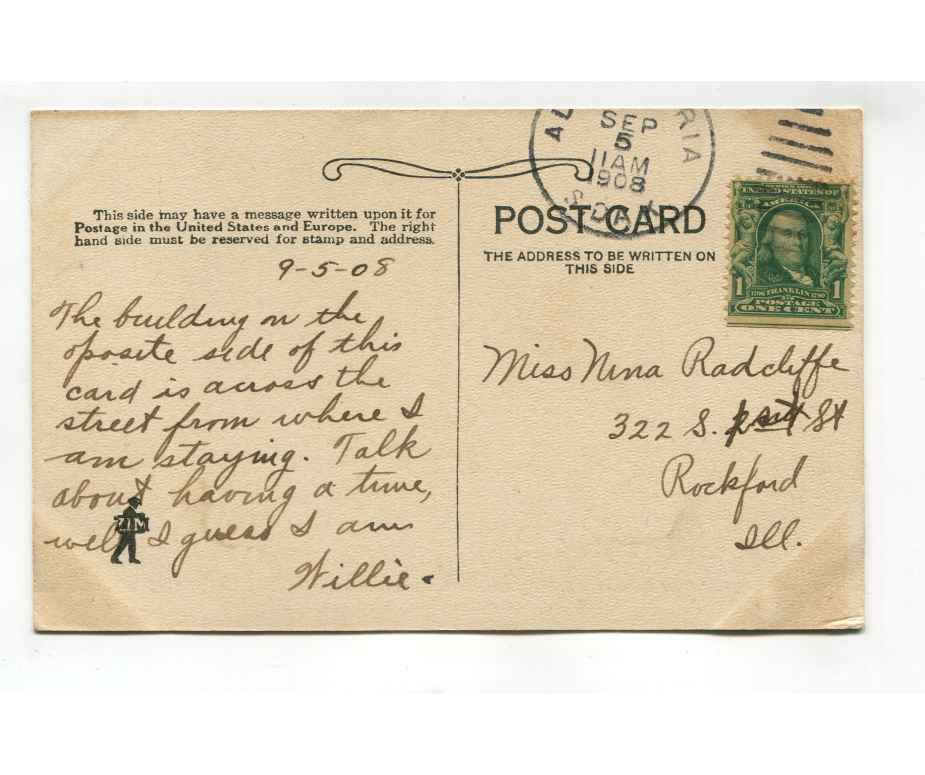 SEP
5
11AM
1908
S.DAK.
This side may have a message written upon it for
Postage in the United States and Europe. The right
hand side must be reserved for stamp and address.
POST CARD
THE ADDRESS TO BE WRITTEN ON
THIS SIDE
SERIES 1902
UNITED STATES OF
AMERICA
1 1
1706 FRANKLIN 1790
POSTAGE
ONE CENT
9-5-08
The building on the
oposite side of this
card is across the
street from where I
am staying. Talk
about having a time,
well I guess I am
Willie.
ZIM
Miss Nina Radcliffe
322 S. St
Rockford
Ill.